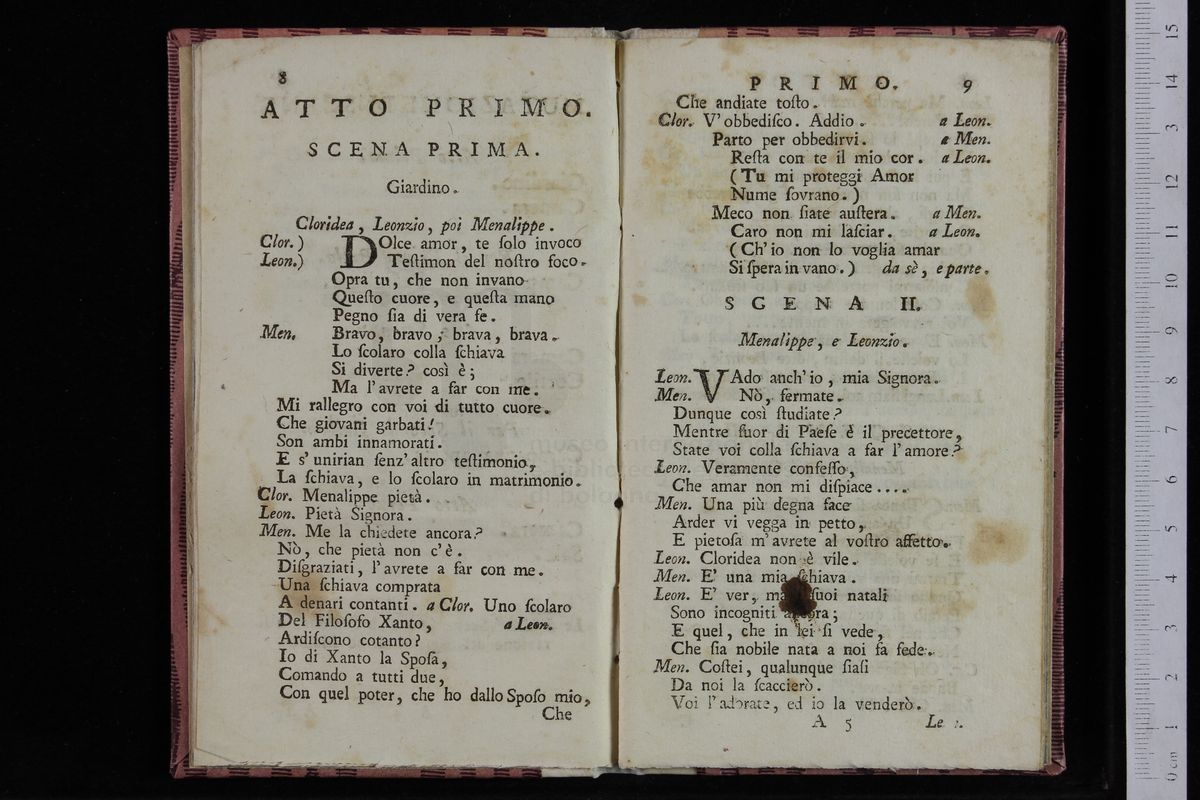 8
ATTO PRIMO.
SCENA PRIMA.
Giardino.
Cloridea, Leonzio, poi Menalippe.
Clor.) DOlce amor, te ſolo invoco
Leon.) Teſtimon del noſtro foco.
Opra tu, che non invano
Queſto cuore, e queſta mano
Pegno ſia di vera fe.
Men. Bravo, bravo; brava, brava.
Lo ſcolaro colla ſchiava
Si diverte? così è;
Ma l'avrete a far con me.
Mi rallegro con voi di tutto cuore.
Che giovani garbati!
Son ambi innamorati.
E s'unirian ſenz'altro teſtimonio,
La ſchiava, e lo ſcolaro in matrimonio.
Clor. Menalippe pietà.
Leon. Pietà Signora.
Men. Me la chiedete ancora?
Nò, che pietà non c'è.
Diſgraziati, l'avrete a far con me.
Una ſchiava comprata
A denari contanti. a Clor. Uno ſcolaro
Del Filoſofo Xanto, a Leon.
Ardiſcono cotanto?
Io di Xanto la Spoſa,
Comando a tutti due,
Con quel poter, che ho dallo Spoſo mio,
Che
PRIMO. 9
Che andiate toſto.
Clor. V'obbediſco. Addio. a Leon.
Parto per obbedirvi. a Men.
Reſta con te il mio cor. a Leon.
(Tu mi proteggi Amor
Nume ſovrano.)
Meco non ſiate auſtera. a Men.
Caro non mi laſciar. a Leon.
(Ch'io non lo voglia amar
Si ſpera in vano.) da sè, e parte.
SCENA II.
Menalippe, e Leonzio.
Leon. VAdo anch'io, mia Signora.
Men. Nò, fermate.
Dunque così ſtudiate?
Mentre fuor di Paeſe è il precettore,
State voi colla ſchiava a far l'amore?
Leon. Veramente confeſſo,
Che amar non mi diſpiace....
Men. Una più degna face
Arder vi vegga in petto,
E pietoſa m'avrete al voſtro affetto.
Leon. Cloridea non è vile.
Men. E' una mia ſchiava.
Leon. E' ver, ma ſuoi natali
Sono incogniti ancora;
E quel, che in lei ſi vede,
Che ſia nobile nata a noi fa fede.
Men. Coſtei, qualunque ſiaſi
Da noi la ſcaccierò.
Voi l'adorate, ed io la venderò.
A 5